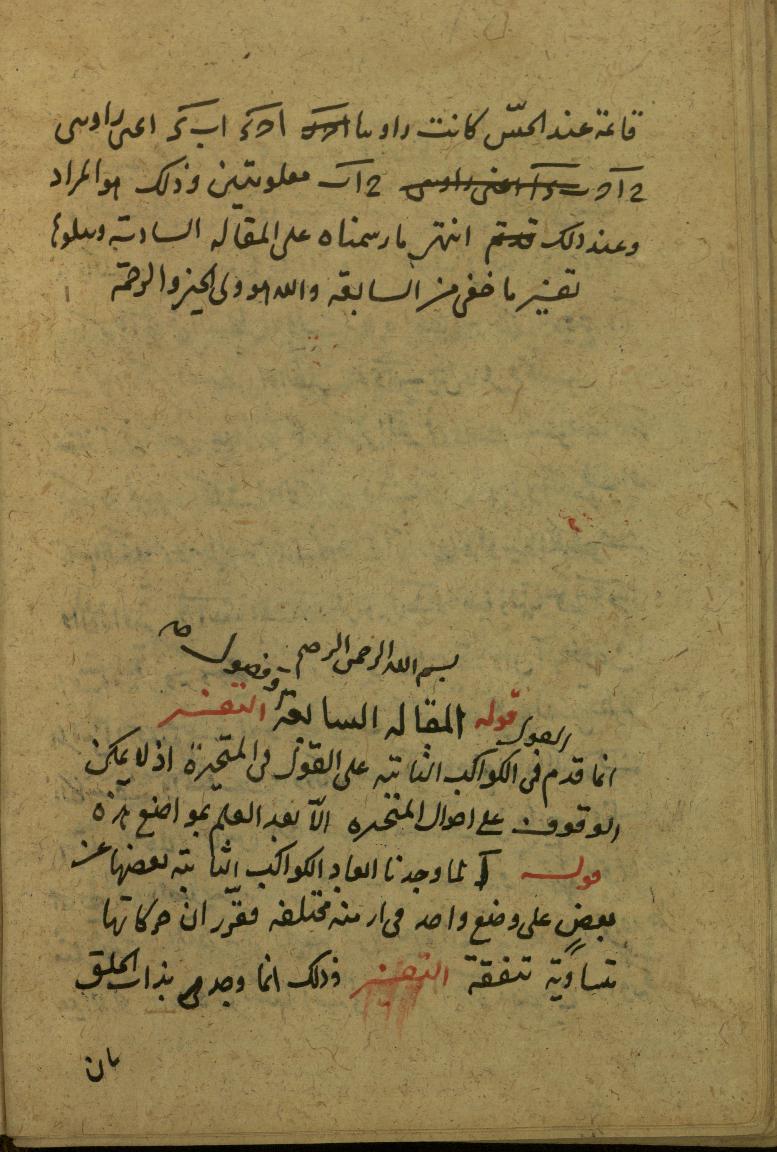 قائمة عند الحسّ كانت زاويتا احد احـﮐ ابـﮐ اعنى زاويتى
معلومتين وذلك هو المراد
وعند ذلك انتهى ما رسمناه على المقاله السادسه ويتلوها
تفسير ما خفى من السابعه والله هو ولى الخير والرحمة
بسم الله الرحمن الرحيم
القول قوله المقاله السابعة وفصول التفسير
انما قدم فى الكواكب الثابته على القول فى المتحيرة اذ لا يمكن
الوقوف على احوال المتحيره الّا بعد العلم بمواضع هذه
قوله آ لما وجدنا ابعاد الكواكب الثابته بعضها عن
بعض على وضع واحد فى ازمنه مختلفه فقرّر ان حركاتها
متساوية متفقة التفسير وذلك انما وجد فى بذات الحلق
بان